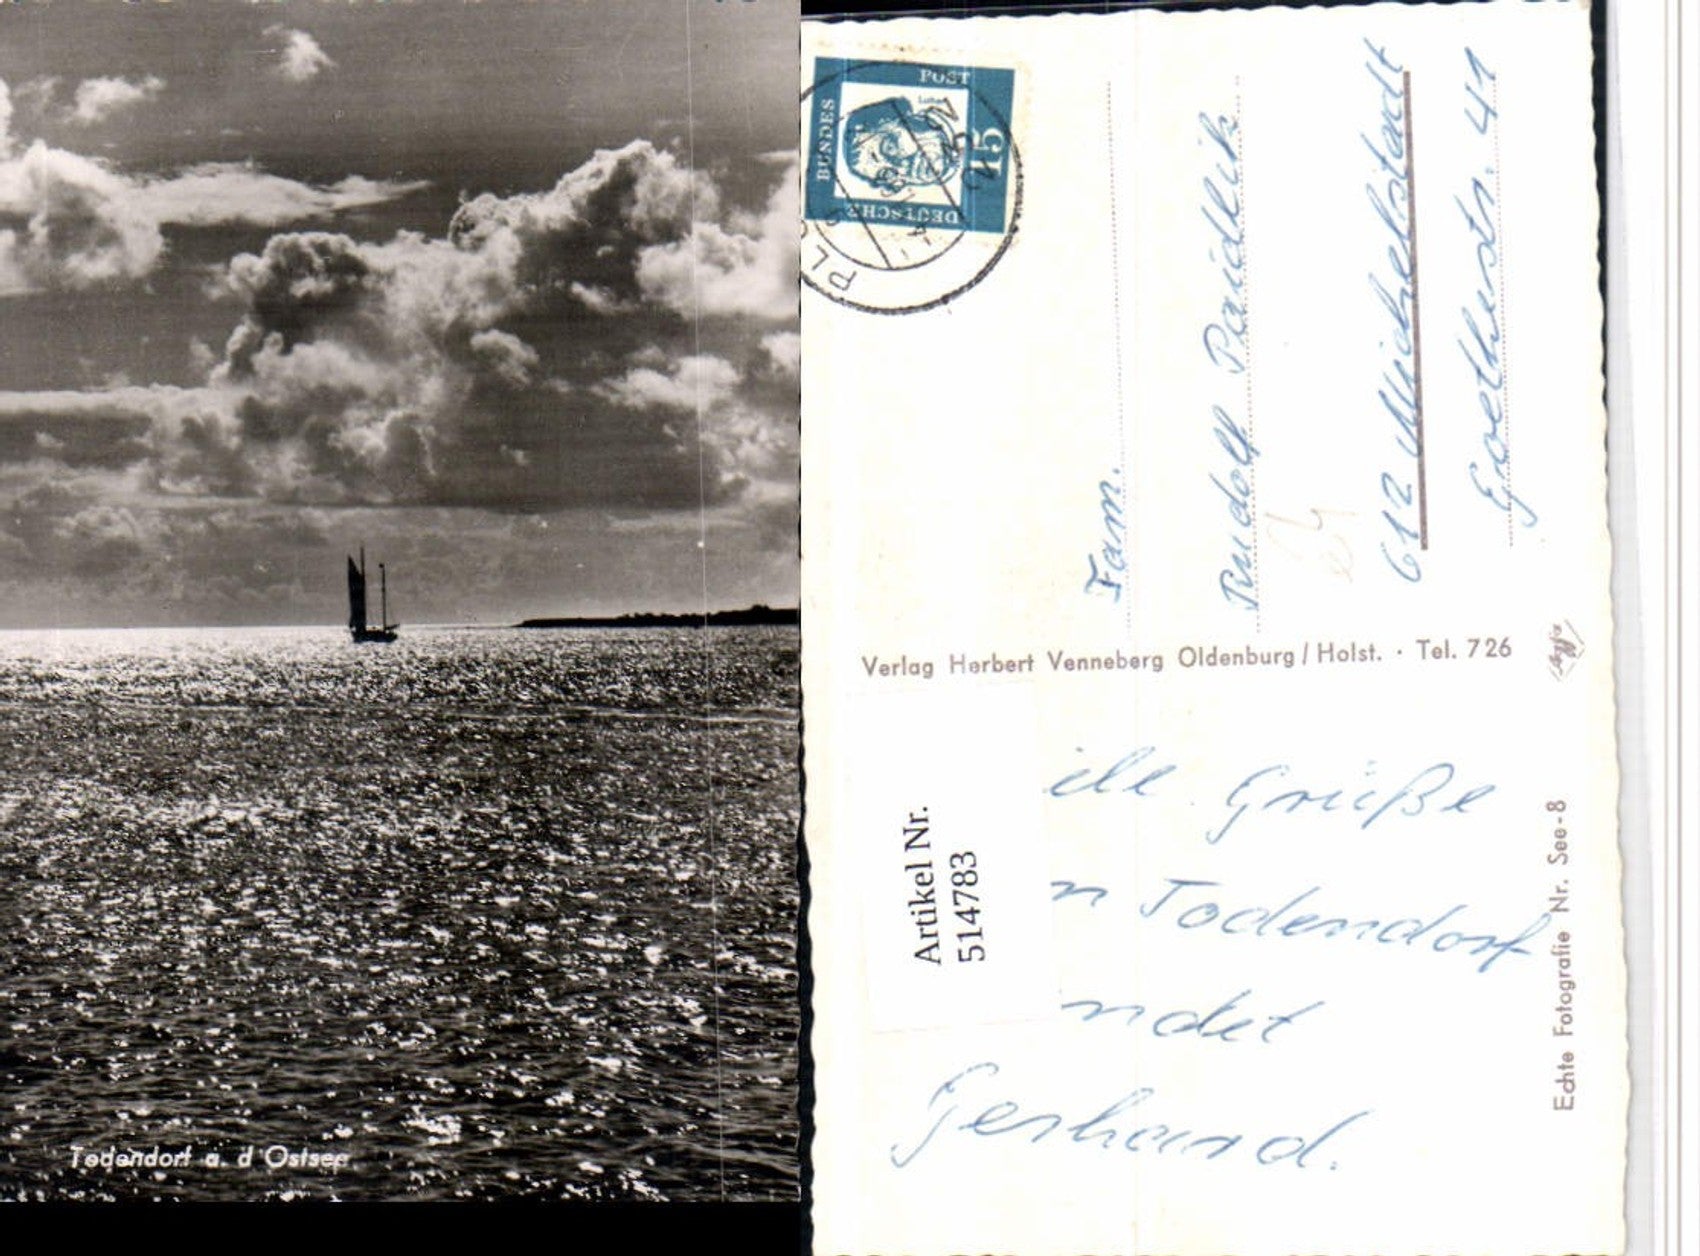 Todendorf a. d Ostsee
DEUTSCHE
BUNDES
POST
15
Luther
PL
Fam.
Rudolf Paidelik
612 Michelstadt
Goethestr. 41
Verlag Herbert Venneberg Oldenburg / Holst. · Tel. 726
Artikel Nr.
514783
ile Grüße
n Todendorf
ndet
Gerhard.
Echte Fotografie Nr. See-8